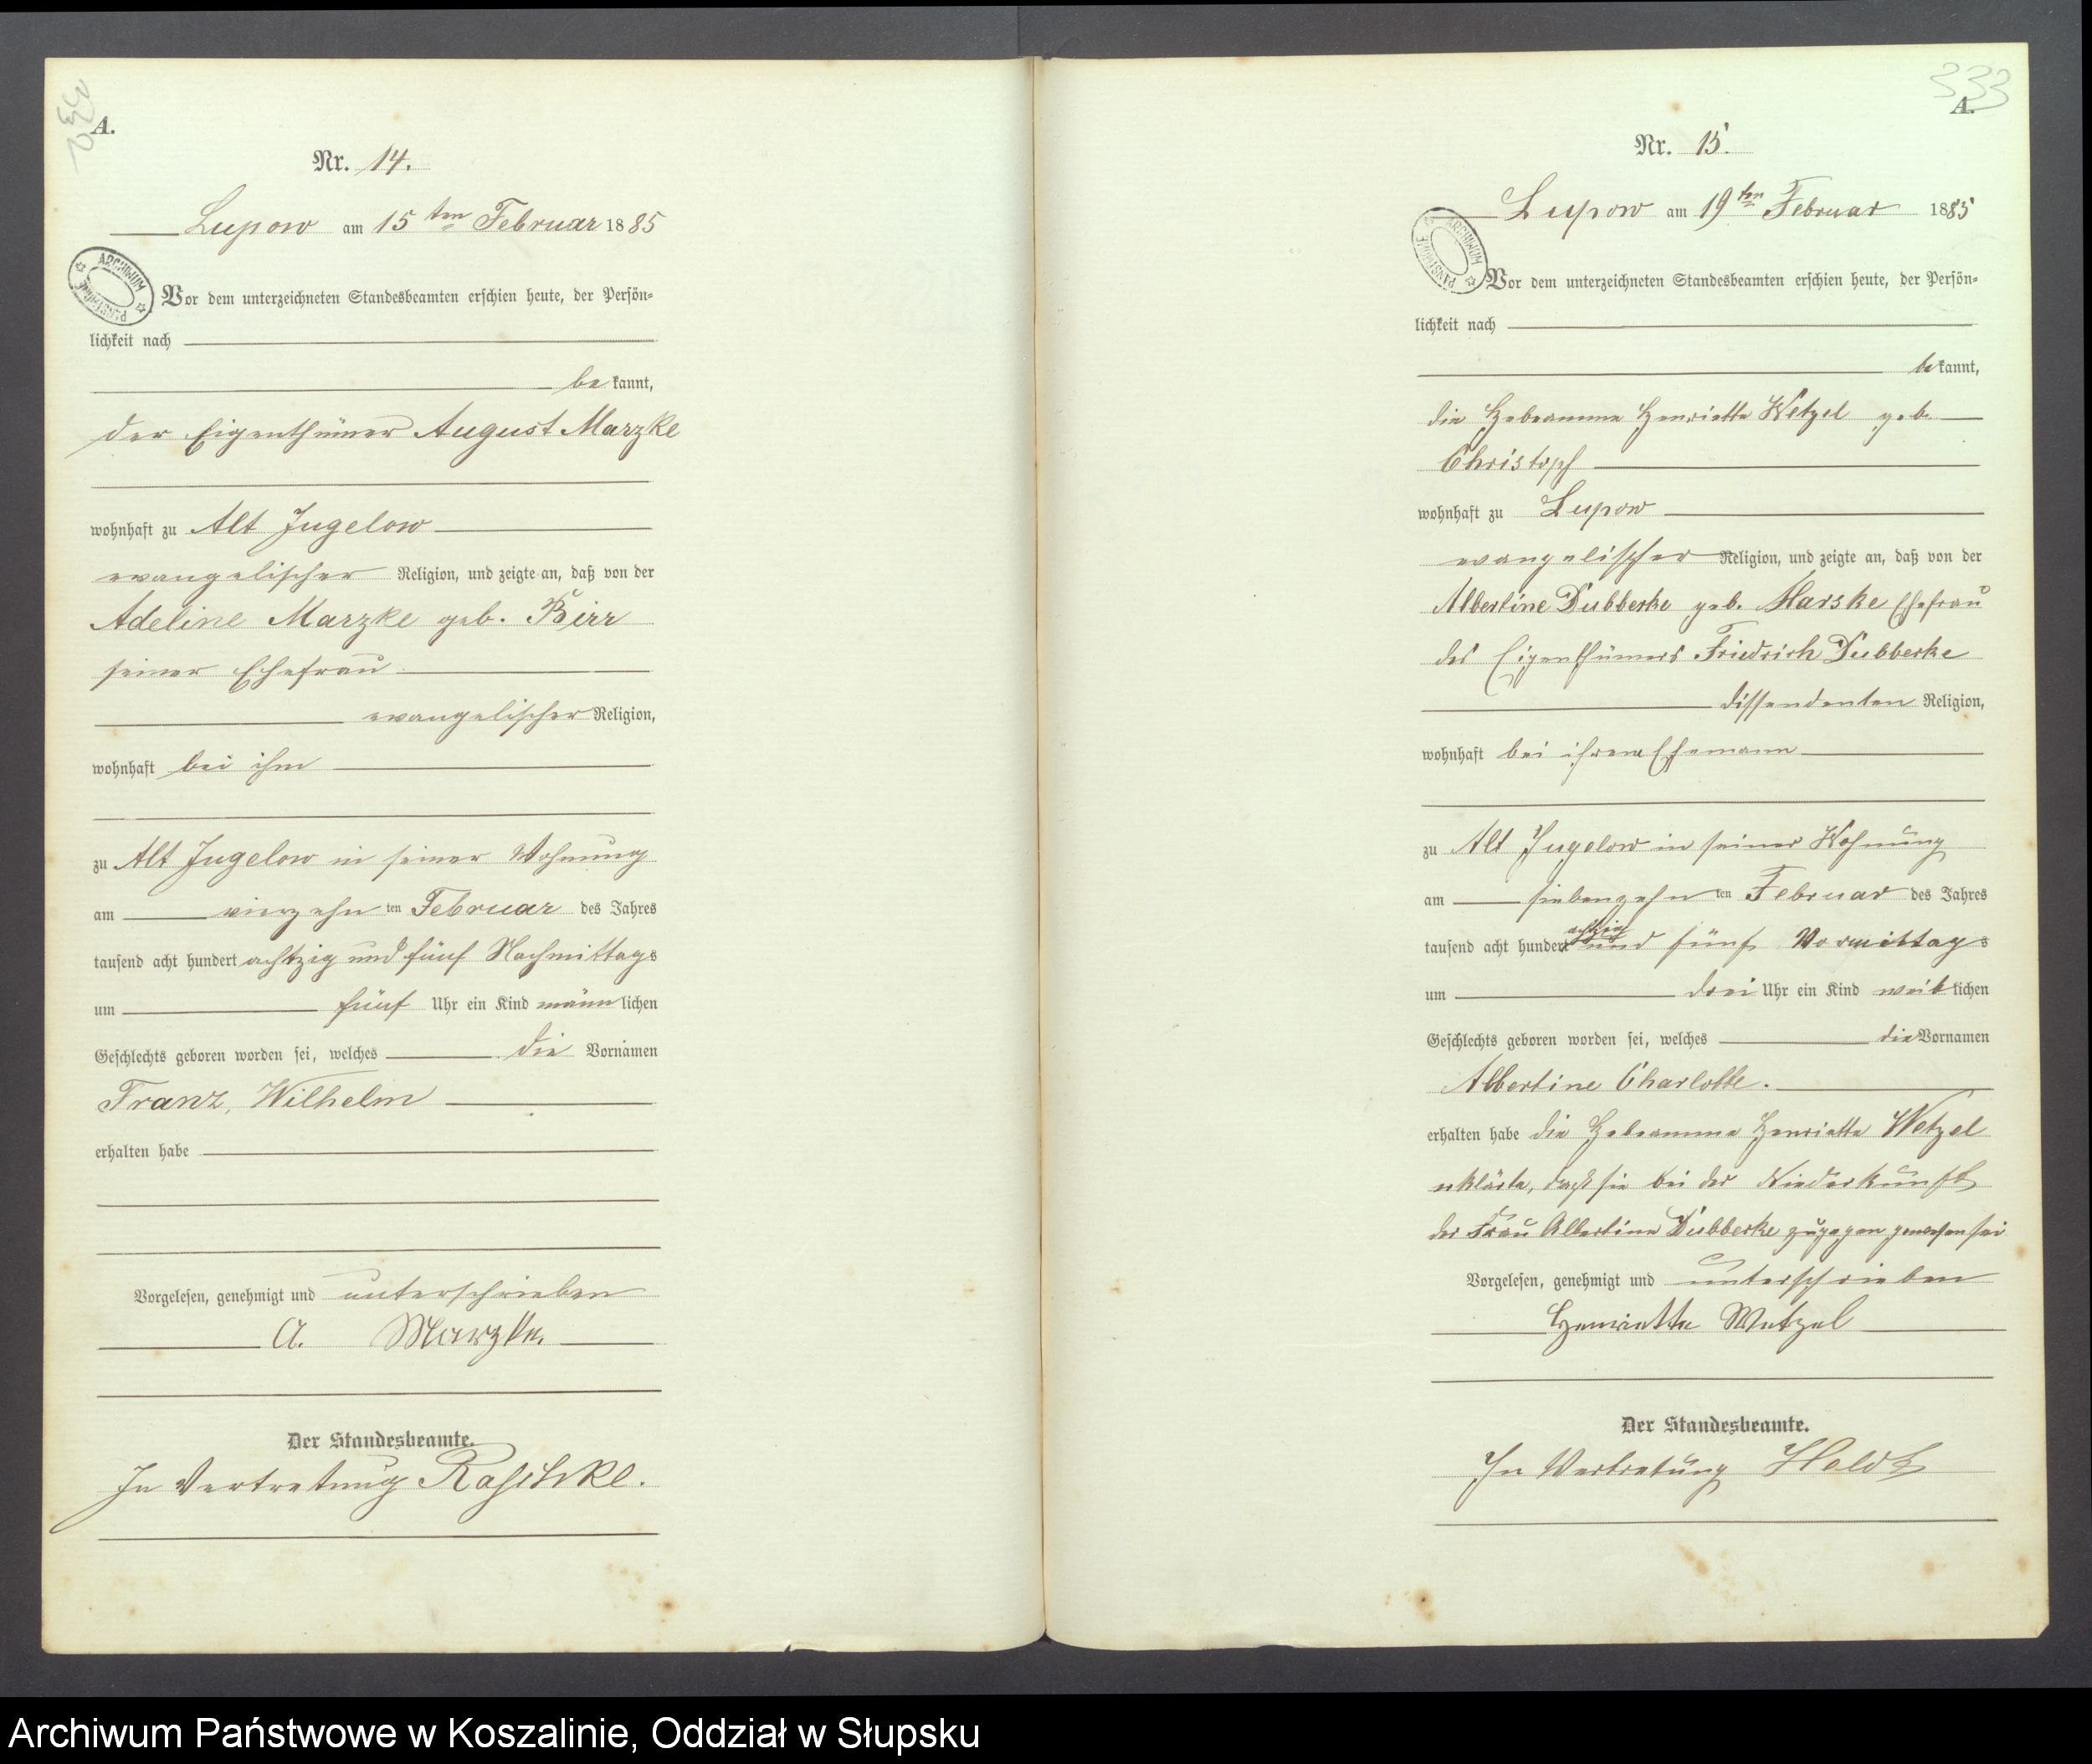 332
A.
Nr. 14.
Lupow am 15ten Februar 1885
ARCHIWUM PAŃSTWOWE
Vor dem unterzeichneten Standesbeamten erschien heute, der Persön-
lichkeit nach
bekannt,
der Eigenthümer August Marzke
wohnhaft zu Alt Jugelow
evangelischer Religion, und zeigte an, daß von der
Adeline Marzke geb. Birr
seiner Ehefrau
evangelischer Religion,
wohnhaft bei ihm
zu Alt Jugelow in seiner Wohnung
am vierzehnten Februar des Jahres
tausend acht hundert achtzig und fünf Nachmittags
um fünf Uhr ein Kind männlichen
Geschlechts geboren worden sei, welches die Vornamen
Franz, Wilhelm
erhalten habe
Vorgelesen, genehmigt und unterschrieben
A. Marzke.
Der Standesbeamte.
In Vertretung Raschke.
333
A.
Nr. 15.
Lupow am 19ten Februar 1885
ARCHIWUM PAŃSTWOWE
Vor dem unterzeichneten Standesbeamten erschien heute, der Persön-
lichkeit nach
bekannt,
die Hebeamme Henriette Wetzel geb.
Christoph
wohnhaft zu Lupow
evangelischer Religion, und zeigte an, daß von der
Albertine Dubberke geb. Marske Ehefrau
des Eigenthümers Friedrich Dubberke
dissendenten Religion,
wohnhaft bei ihrem Ehemann
zu Alt Jugelow in seiner Wohnung
am siebenzehnten Februar des Jahres
tausend acht hundert achtzig und fünf Vormittags
um drei Uhr ein Kind weiblichen
Geschlechts geboren worden sei, welches die Vornamen
Albertine Charlotte.
erhalten habe die Hebeamme Henriette Wetzel
erklärte, daß sie bei der Niederkunft
der Frau Albertine Dubberke zugegen gewesen sei
Vorgelesen, genehmigt und unterschrieben
Henriette Wetzel
Der Standesbeamte.
In Vertretung Holdt
Archiwum Państwowe w Koszalinie, Oddział w Słupsku